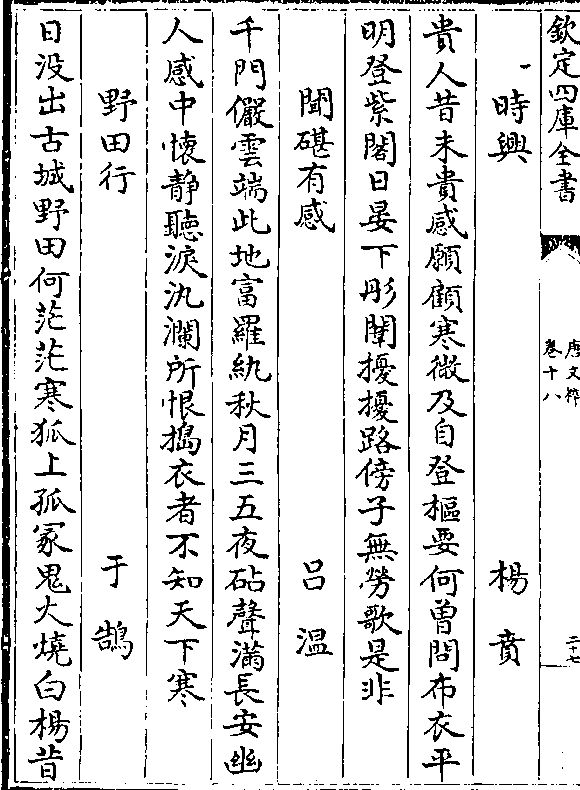 欽定四庫全書
唐文粹
卷十八
二十七
時興　楊賁
貴人昔未貴感願顧寒微及自登樞要何曾問布衣平
明登紫閣日晏下彤闈擾擾路傍子無勞歌是非
聞碪有感　呂溫
千門儼雲端此地富羅紈秋月三五夜砧聲滿長安幽
人感中懷静聽淚汍瀾所恨搗衣者不知天下寒
野田行　于鵠
日没出古城野田何茫茫寒狐上孤冢鬼火燒白楊昔